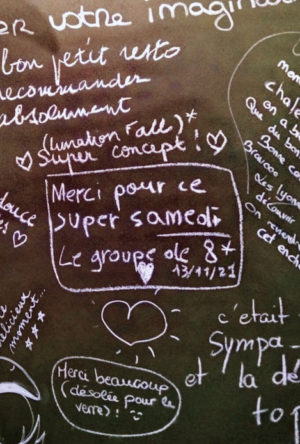 er votre imagina
bon petit resto
recommander
absolument
(lunation Fall)*
♡ Super concept ! ♡
Merci pour ce
super samedi
Le groupe de 8*
13/11/21
douce
c'était
Sympa
et la dé
top
Merci beaucoup
(désolée pour le
verre) !
moment...
Que
on a
Bonne
Bravooo
Les lyon
On reviendra
cet ench